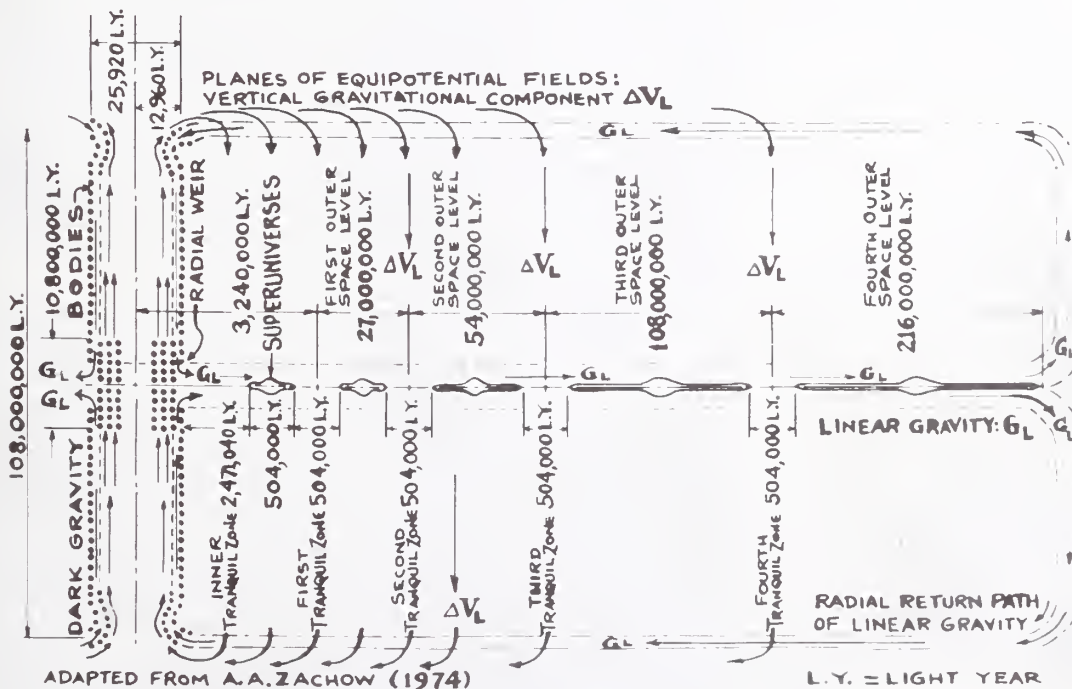 25,920 L.Y.
12,960 L.Y.
PLANES OF EQUIPOTENTIAL FIELDS:
VERTICAL GRAVITATIONAL COMPONENT ΔVL
GL
108,000,000 L.Y.
10,800,000 L.Y.
DARK GRAVITY BODIES
RADIAL WEIR
3,240,000 L.Y.
SUPERUNIVERSES
FIRST OUTER
SPACE LEVEL
27,000,000 L.Y.
ΔVL
SECOND OUTER
SPACE LEVEL
54,000,000 L.Y.
ΔVL
THIRD OUTER
SPACE LEVEL
108,000,000 L.Y.
ΔVL
FOURTH OUTER
SPACE LEVEL
216,000,000 L.Y.
GL
GL
GL
GL
GL
LINEAR GRAVITY: GL
GL
GL
INNER
TRANQUIL ZONE 2,471,040 L.Y.
504,000 L.Y.
FIRST
TRANQUIL ZONE 504,000 L.Y.
SECOND
TRANQUIL ZONE 504,000 L.Y.
ΔVL
THIRD
TRANQUIL ZONE 504,000 L.Y.
FOURTH
TRANQUIL ZONE 504,000 L.Y.
RADIAL RETURN PATH
OF LINEAR GRAVITY
GL
ADAPTED FROM A.A.ZACHOW (1974)
L.Y. = LIGHT YEAR